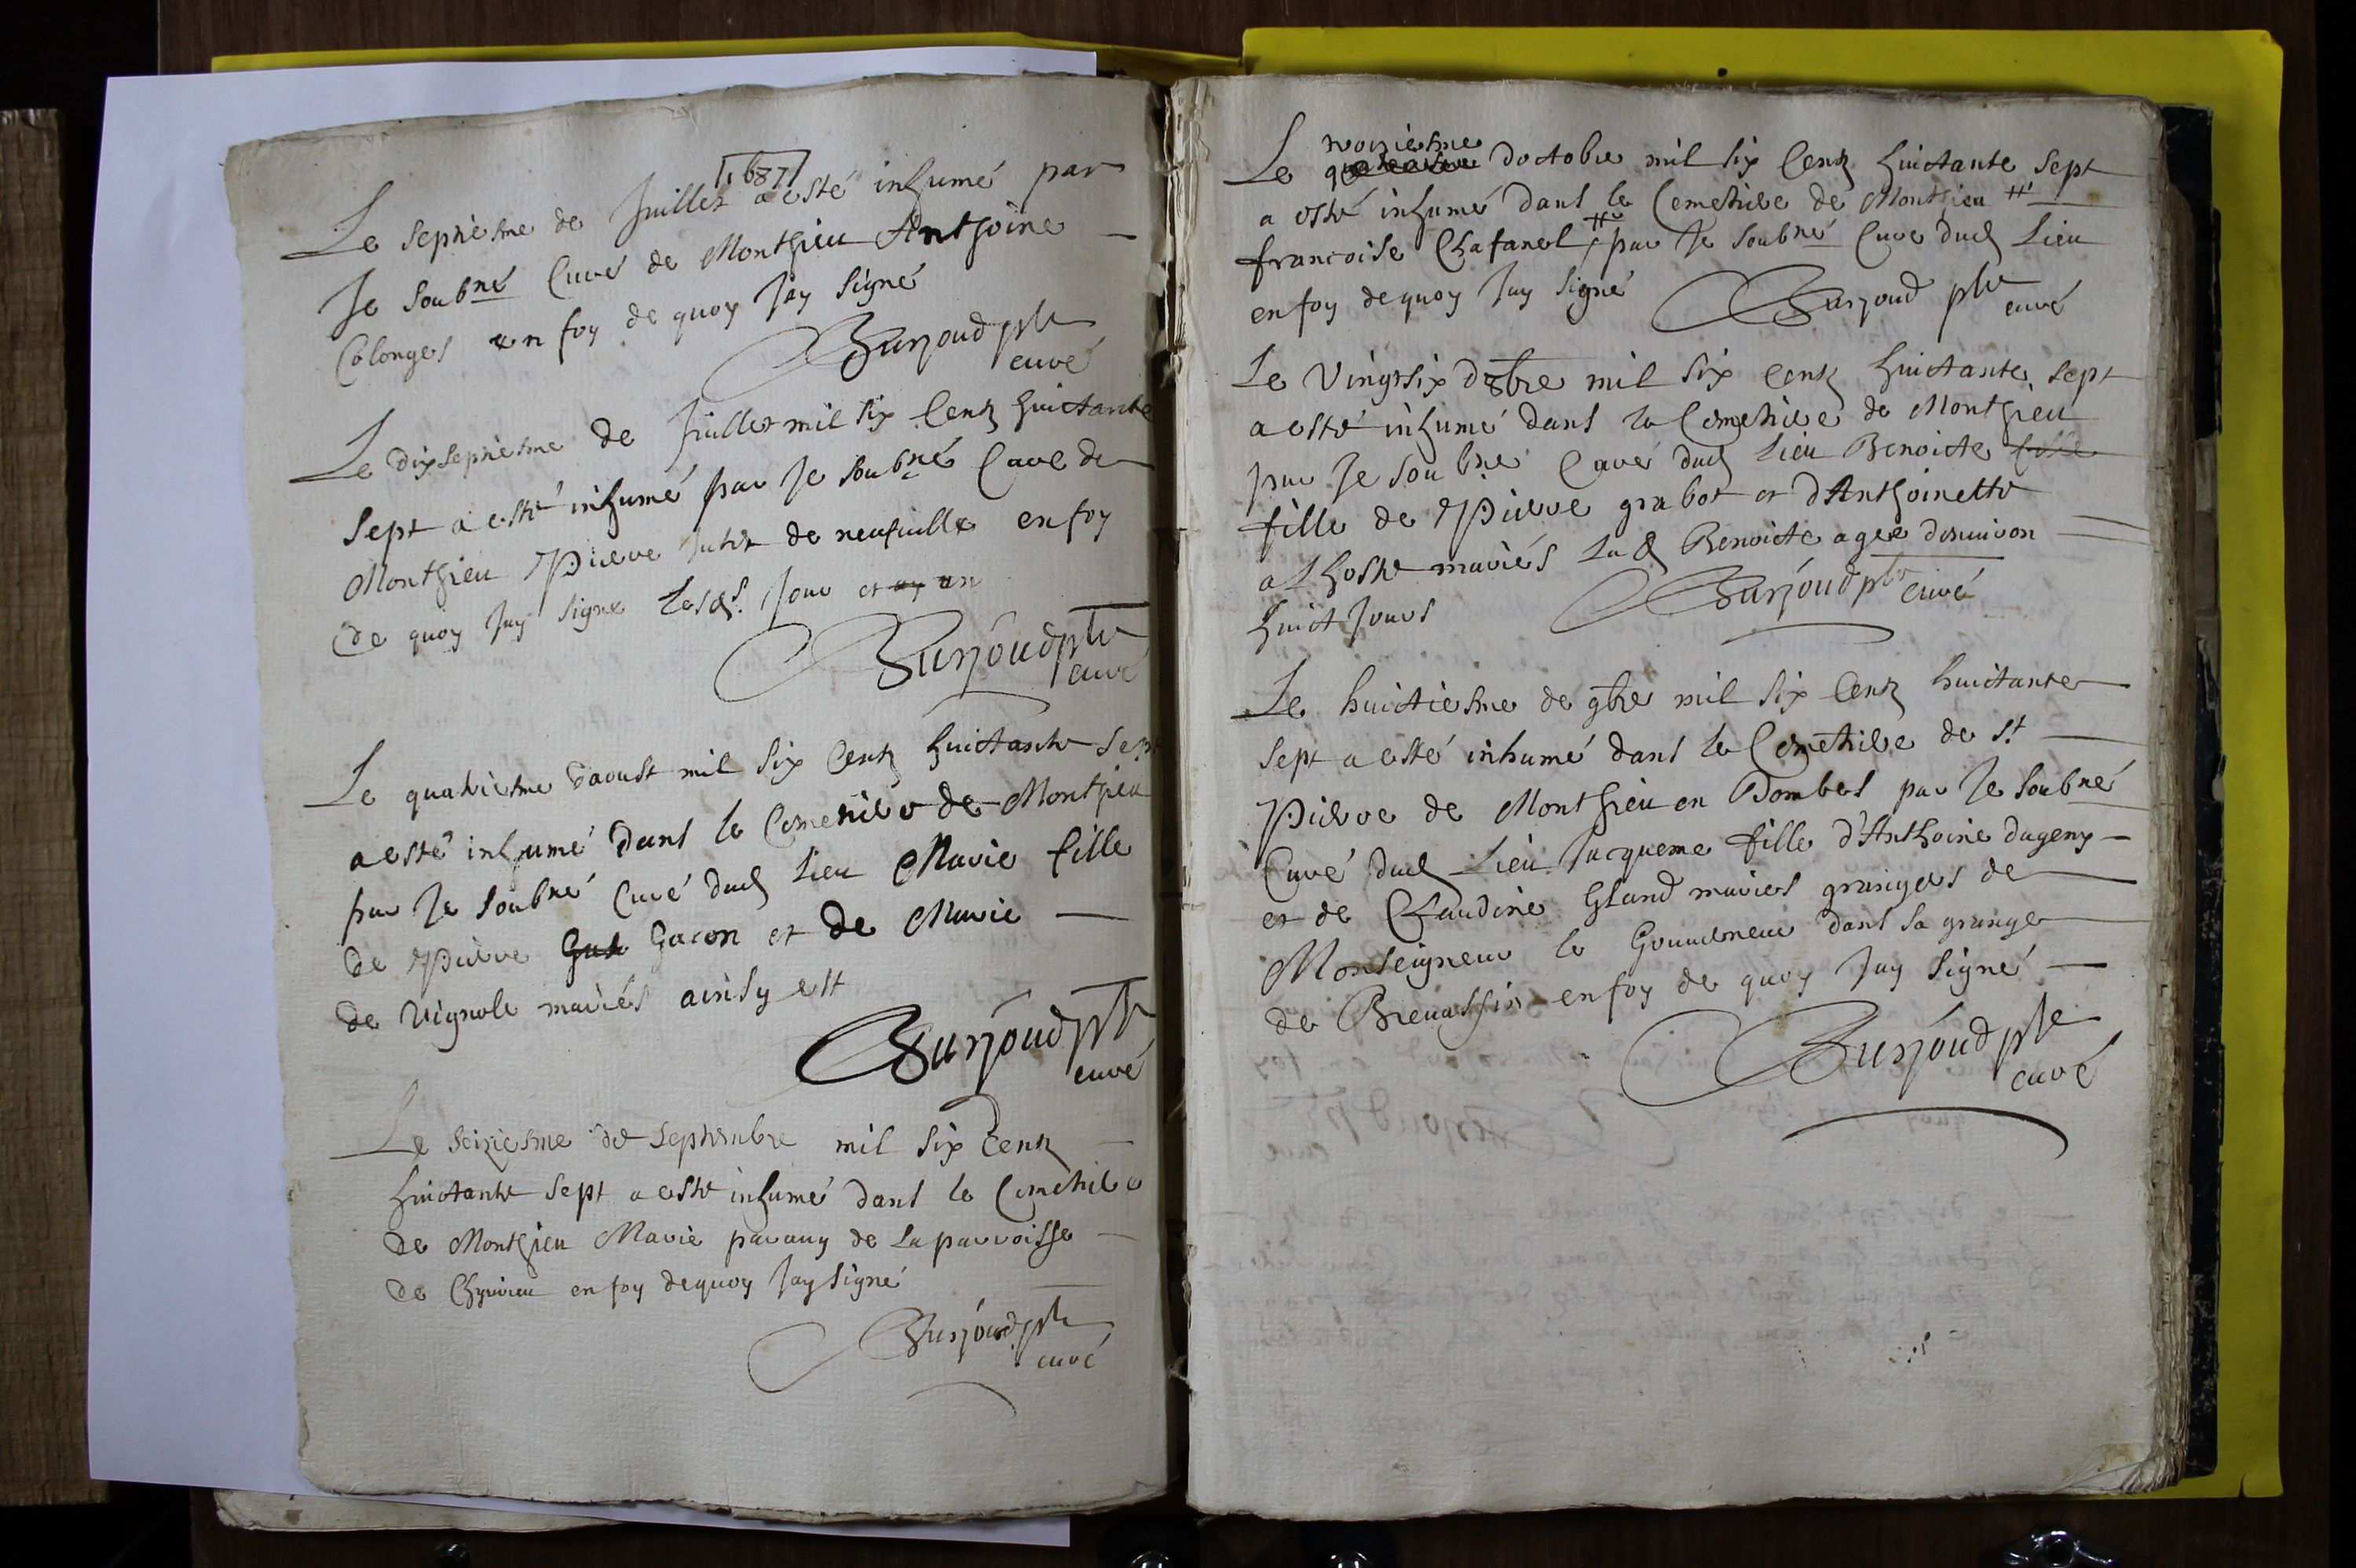 1687
Le septiesme de Juillet a esté inhumé par
Je soubné Curé de Monthieu Anthoine
Colonges en foy de quoy Jay signé
Burjoud pbr
curé
Le dixseptiesme de Juillet mil six Centz huictante
sept a esté inhumé par Je soubné Curé de
Monthieu Pierre de neufuille en foy
de quoy Jay signé lesds. Jour et an
Burjoud pbr
curé
Le quatriesme daoust mil six Centz huictante sept
a esté inhumé dans le Cemetiere de Monthieu
par Je soubné Curé dud lieu Marie fille
de Pierre Gacon et de Marie
de Vignole mariés ainsy est
Burjoud pbr
curé
Le seiziesme de septembre mil six Centz
huictante sept a esté inhumé dans le Cimetiere
de Monthieu Marie de la parroisse
de en foy dequoy Jay signé
Burjoud pbr
curé
noviesme
Le doctobre mil six Centz huictante sept
a esté inhumé dans le Cemetiere de Monthieu #
francoise Chafanel # par Je soubné Curé dud Lieu
en foy dequoy Jay signé Burjoud pbr
curé
Le Vingtsix d8bre mil six Centz huictante sept
a esté inhumé dans le Cemetiere de Monthieu
par Je soubné Curé dud lieu Benoicte fille
fille de Pierre grabot et d'Anthoinette
alhoste mariés lad Benoicte agee denuiron
huict Jours Burjoud pbr curé
Le huictiesme de 9bre mil six Centz huictante
sept a esté inhumé dans le Cemetiere de St
Pierre de Monthieu en Dombes par Je soubné
Curé dud Lieu Jacqueme fille d'Anthoine dugeny
et de Claudine Gland mariés grangers de
Monseigneur le Gouuerneur dans sa grange
de en foy de quoy Jay signé
Burjoud pbr
curé